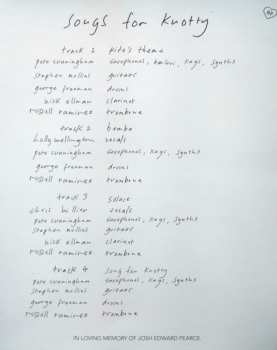 songs for knotty
track 1 kite's theme
pete cunningham saxophones, keys, synths
stephen mullins guitars
george freeman drums
nick ellman clarinet
russell ramirez trombone
track 2 bamba
holly wellington vocals
pete cunningham saxophones, keys, synths
george freeman drums
russell ramirez trombone
track 3 solace
chris vocals
pete cunningham saxophones, keys, synths
stephen guitars
nick ellman clarinet
russell ramirez trombone
track 4 song for knotty
pete cunningham saxophones, keys, synths
stephen guitars
george freeman drums
russell ramirez trombone
IN LOVING MEMORY OF JOSH EDWARD PEARCE